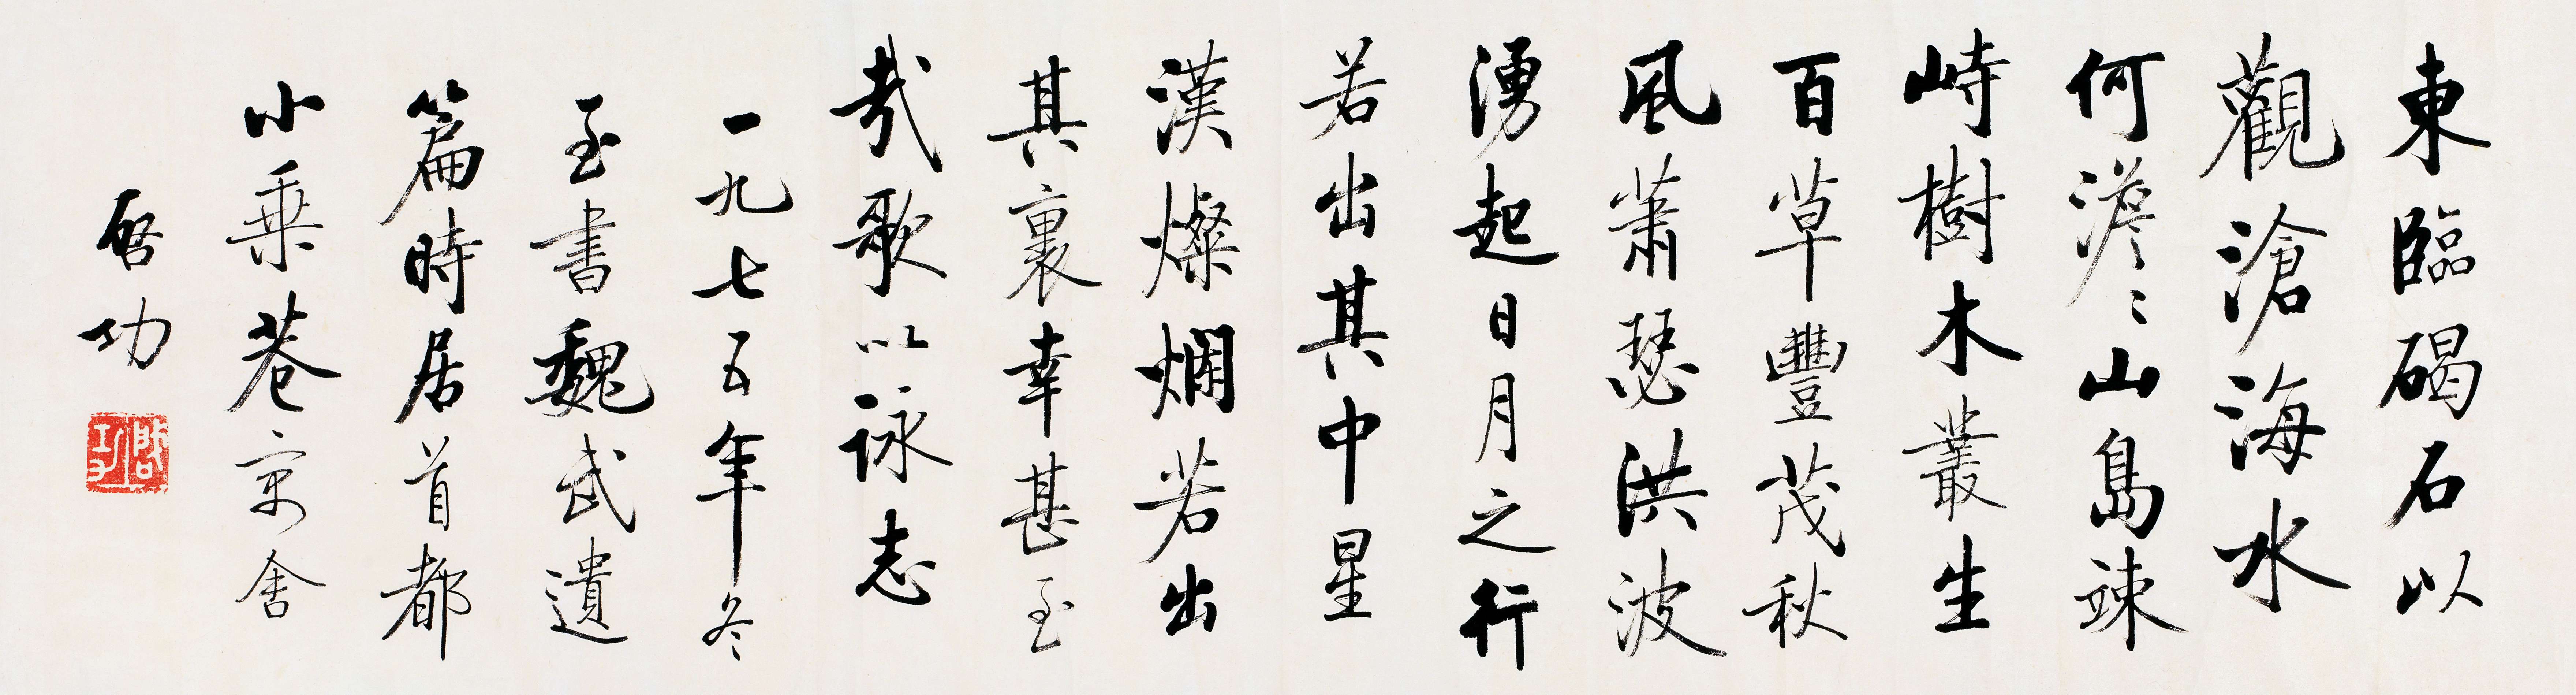 東臨碣石以
觀滄海水
何澹〻山島竦
峙樹木叢生
百草豐茂秋
風蕭瑟洪波
湧起日月之行
若出其中星
漢燦爛若出
其裏幸甚至
哉歌以詠志
一九七五年冬
至書魏武遺
篇時居首都
小乘巷寓舍
啓功
啟功